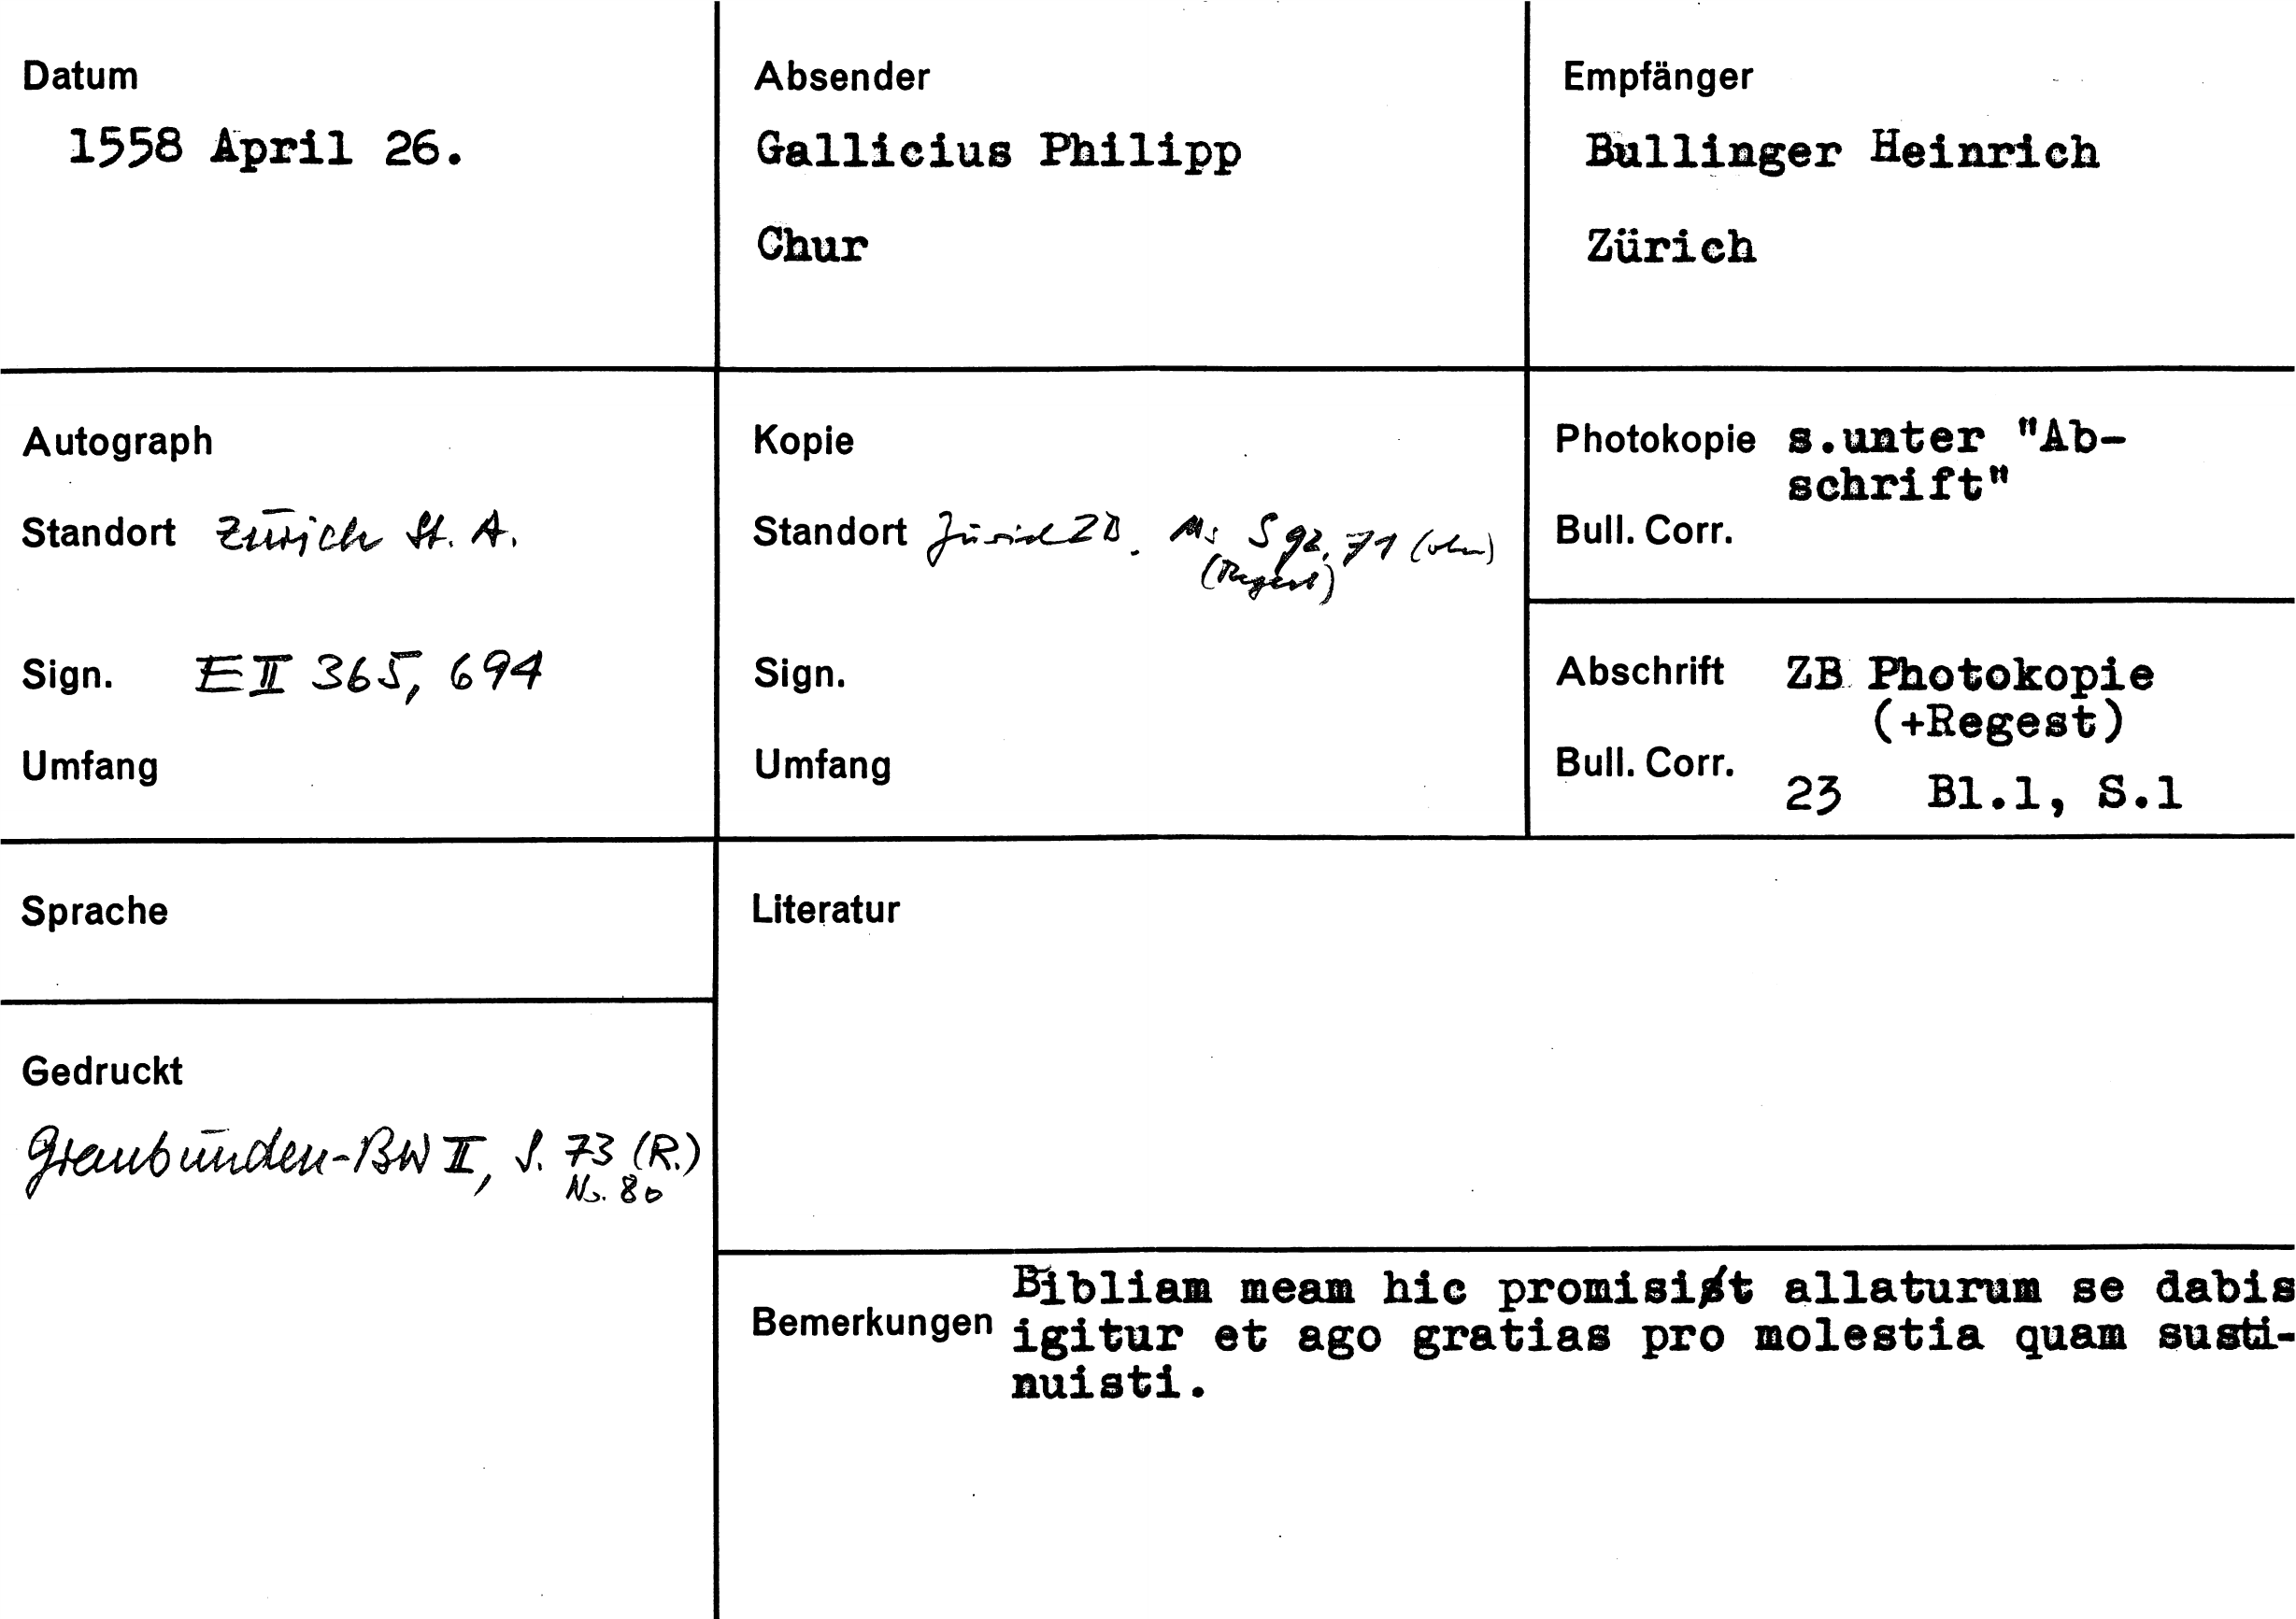 Datum
1558 April 26.
Absender
Gallicius Philipp
Chur
Empfänger
Bullinger Heinrich
Zürich
Autograph
Standort Zürich St. A.
Sign. E II 365, 694
Umfang
Kopie
Standort Zürich ZB. Ms S 92, 71
(Regest)
Sign.
Umfang
Photokopie s.unter "Ab-
schrift"
Bull. Corr.
Abschrift ZB Photokopie
(+Regest)
Bull. Corr. 23 Bl.1, S.1
Sprache
Literatur
Gedruckt
Graubünden-BW II, S. 73 (R.)
No. 80
Bemerkungen
Bibliam meam hic promisist allaturum se dabis
igitur et ago gratias pro molestia quam susti-
nuisti.